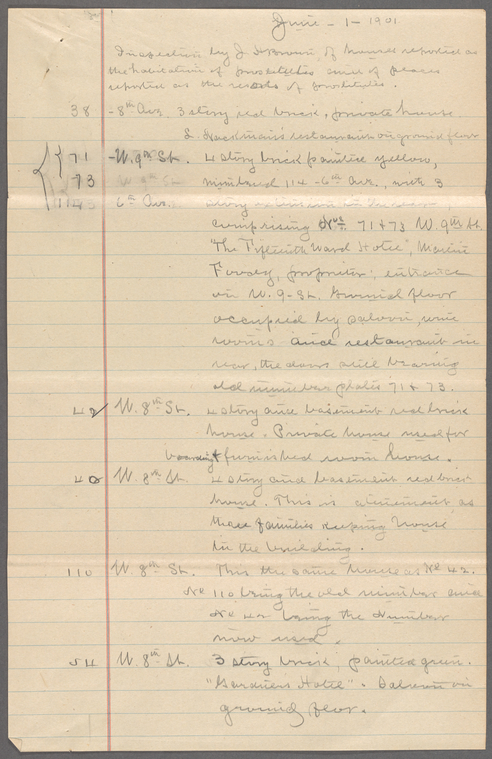 June - 1 - 1901
Inspection by J. Brown, of houses reported as
the habitation of prostitutes and of places
reported as the resorts of prostitutes.
38 - 8th Ave. 3 story red brick, private house
restaurant on ground floor
71 - W. 9th St. 4 story brick painted yellow,
73 W. 9th St. numbered 114 - 6th Ave., with 3
6th Ave. story extension in the rear,
comprising Nos. 71 & 73 W. 9th St.
"The Fifteenth Ward Hotel",
proprietor; entrance
on W. 9 - St. Ground floor
occupied by saloon, wine
rooms and restaurant in
rear, the doors still bearing
old number plates 71 & 73.
42 W. 8th St. 4 story and basement red brick
house. Private house used for
boarding & furnished room house.
40 W. 8th St. 4 story and basement red brick
house. This is a tenement as
three families keeping house
in the building.
110 W 8th St. This the same house as No 42.
No 110 being the old number and
No 42 being the number
now used.
54 W. 8th St. 3 story brick, painted green.
"Gardner's Hotel". Saloon on
ground floor.